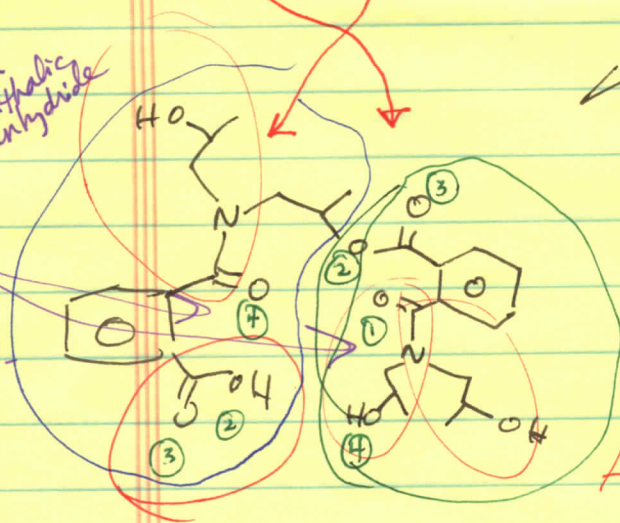 thalic
nhydride
HO
N
O
4
OH
O
2
3
3
O
O
2
O
1
N
HO
OH
4